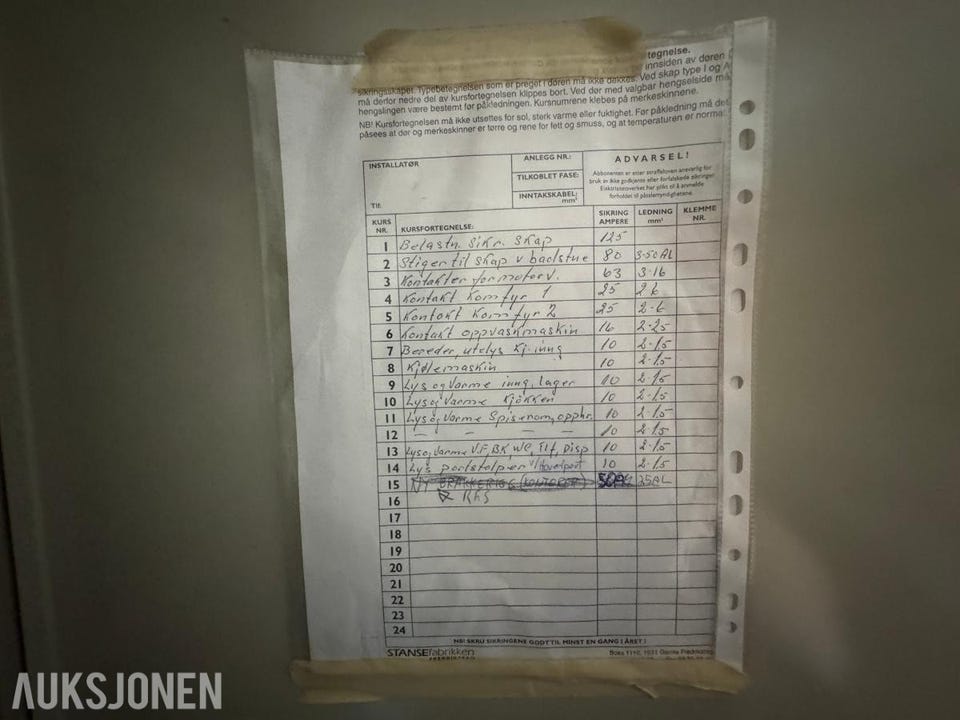 tegnelse.
innsiden av døren
sikringsskapet. Typebetegnelsen som er preget i døren må ikke dekkes. Ved skap type I og A
må derfor nedre del av kursfortegnelsen klippes bort. Ved dør med valgbar hengselside må
hengslingen være bestemt før påkledningen. Kursnumrene klebes på merkeskinnene.
NB! Kursfortegnelsen må ikke utsettes for sol, sterk varme eller fuktighet. Før påkledning må det
påsees at dør og merkeskinner er tørre og rene for fett og smuss, og at temperaturen er normal
INSTALLATØR
Tlf:
ANLEGG NR.:
TILKOBLET FASE:
INNTAKSKABEL: mm²
ADVARSEL!
Abbonenten er etter straffeloven ansvarlig for
bruk av ikke godkjente eller forfalskede sikringer
Elektrisitetsverket har plikt til å anmelde
forholdet til påtalemyndighetene.
KURS NR. KURSFORTEGNELSE: SIKRING AMPERE LEDNING mm² KLEMME NR.
1 Belastn. Sikr. Skap 125
2 Stiger til skap v badstue 80 3·50 AL
3 Kontakter for motorv. 63 3·16
4 Kontakt Komfyr 1 25 2·6
5 Kontakt Komfyr 2 25 2·6
6 Kontakt oppvaskmaskin 16 2·25
7 Bereder, utelys Kj-inng 10 2·1,5
8 Kjølemaskin 10 2·1,5
9 Lys og Varme inng, lager 10 2·1,5
10 Lys og Varme Kjökken 10 2·1,5
11 Lys og Varme Spiserom, opph. 10 2·1,5
12 — — — — 10 2·1,5
13 Lys og Varme VF, BK, WC, Disp 10 2·1,5
14 Lys portstolper v/Hovedport 10 2·1,5
15 NY BRAKKERIGG (KONTORER) 35AL
16
17
18
19
20
21
22
23
24
NB! SKRU SIKRINGENE GODT TIL MINST EN GANG I ÅRET!
STANSEfabrikken
FREDRIKSTAD
AUKSJONEN